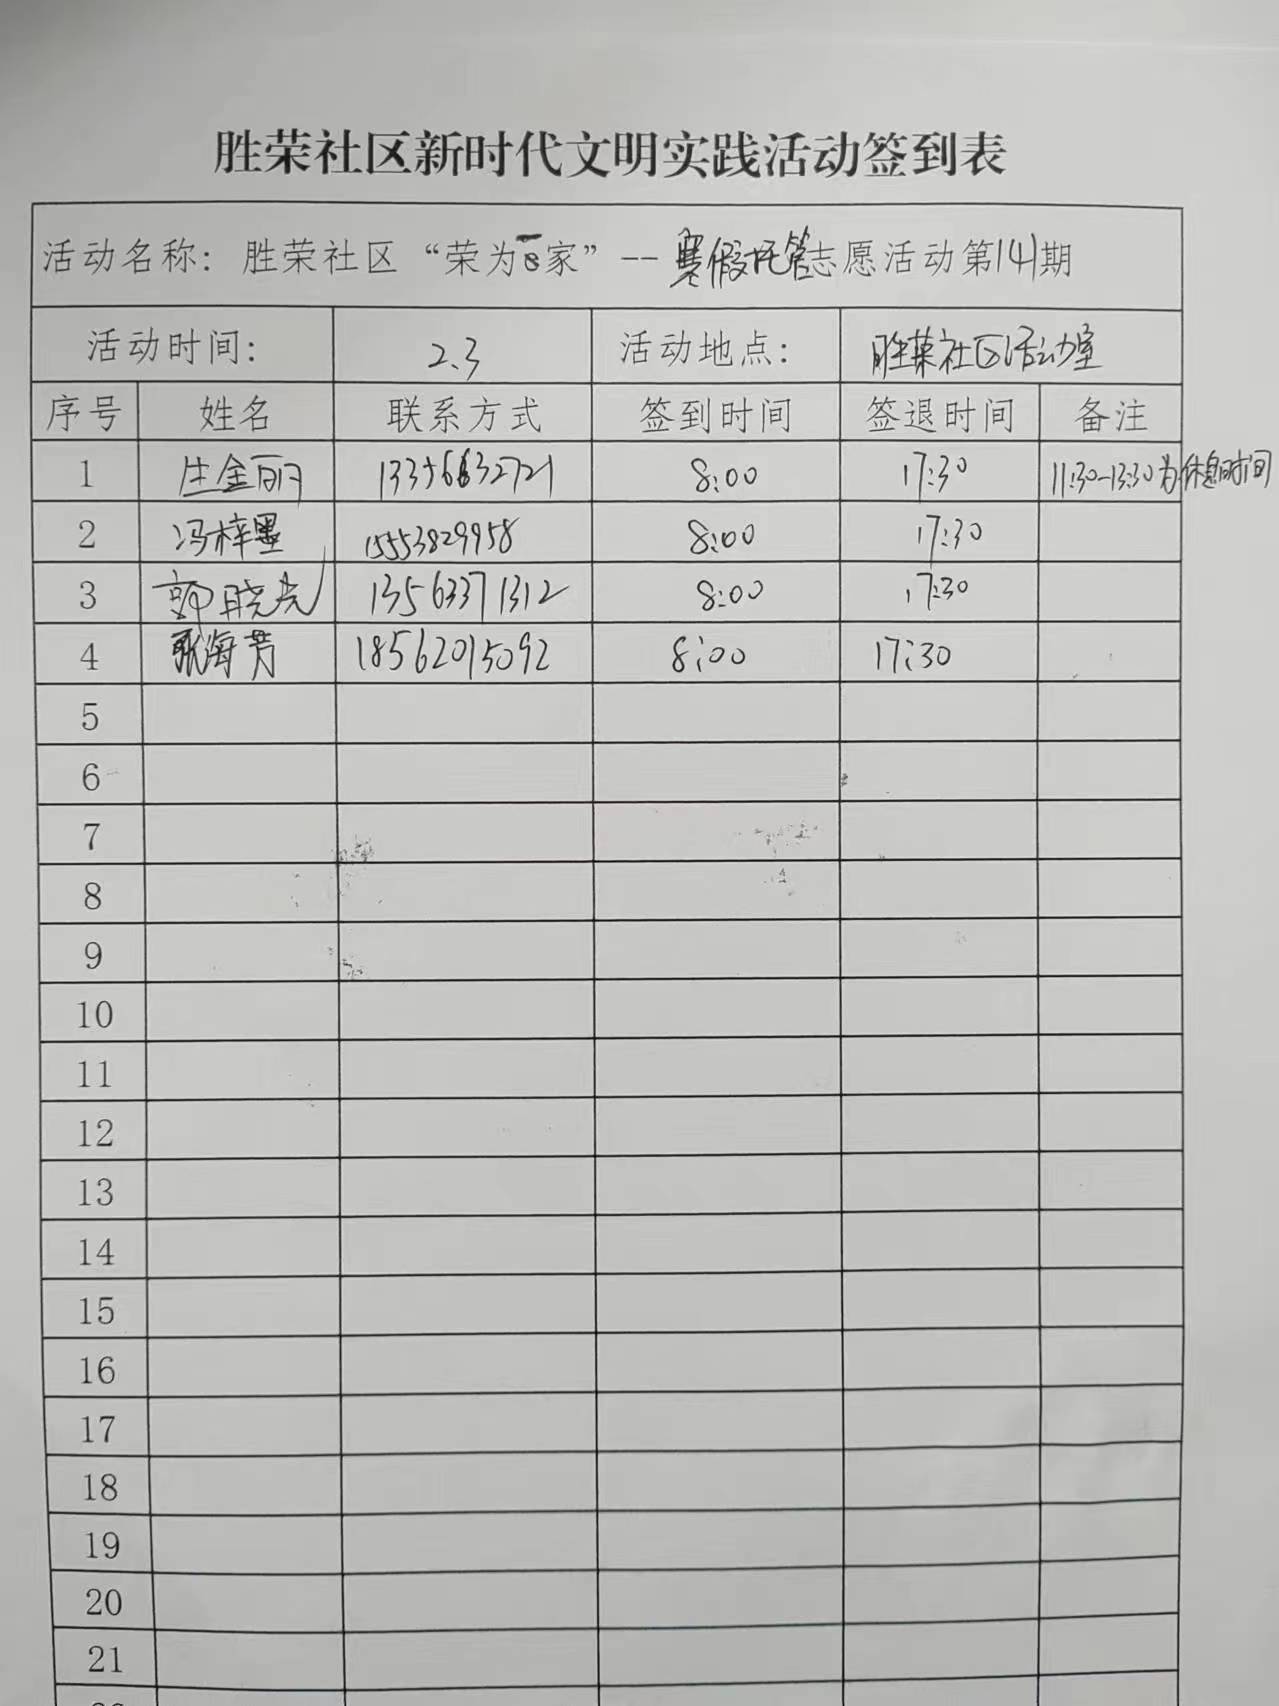 胜荣社区新时代文明实践活动签到表
活动名称：胜荣社区“荣为一家”--寒假托管志愿活动第141期
活动时间： 2.3 活动地点： 胜荣社区活动室
序号 姓名 联系方式 签到时间 签退时间 备注
1 生金丽 13356632721 8:00 17:30 11:30-13:30为休息时间
2 冯梓墨 15553829958 8:00 17:30
3 郭晓光 13563371312 8:00 17:30
4 张海芳 18562015092 8:00 17:30
5
6
7
8
9
10
11
12
13
14
15
16
17
18
19
20
21